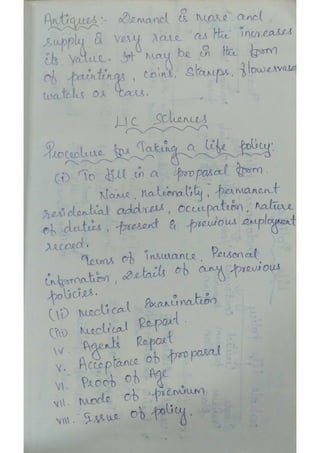 Antiques:- Demand is more and
supply is very rare as the increases
its value. It may be in the form
of paintings, coins, stamps, flowervase
watchs or cars.
LIC Schemes
Procedure for Taking a life policy:
(i) To fill in a proposal form.
Name, nationality, permanent
residential address, occupation, nature
of duties, present & previous employment
record.
Terms of insurance, Personal
information, Details of any previous
policies.
(ii) Medical Examination
(iii) Medical Report.
iv. Agent's Report
v. Acceptance of proposal
vi. Proof of Age
vii. mode of premium
viii. Issue of policy.